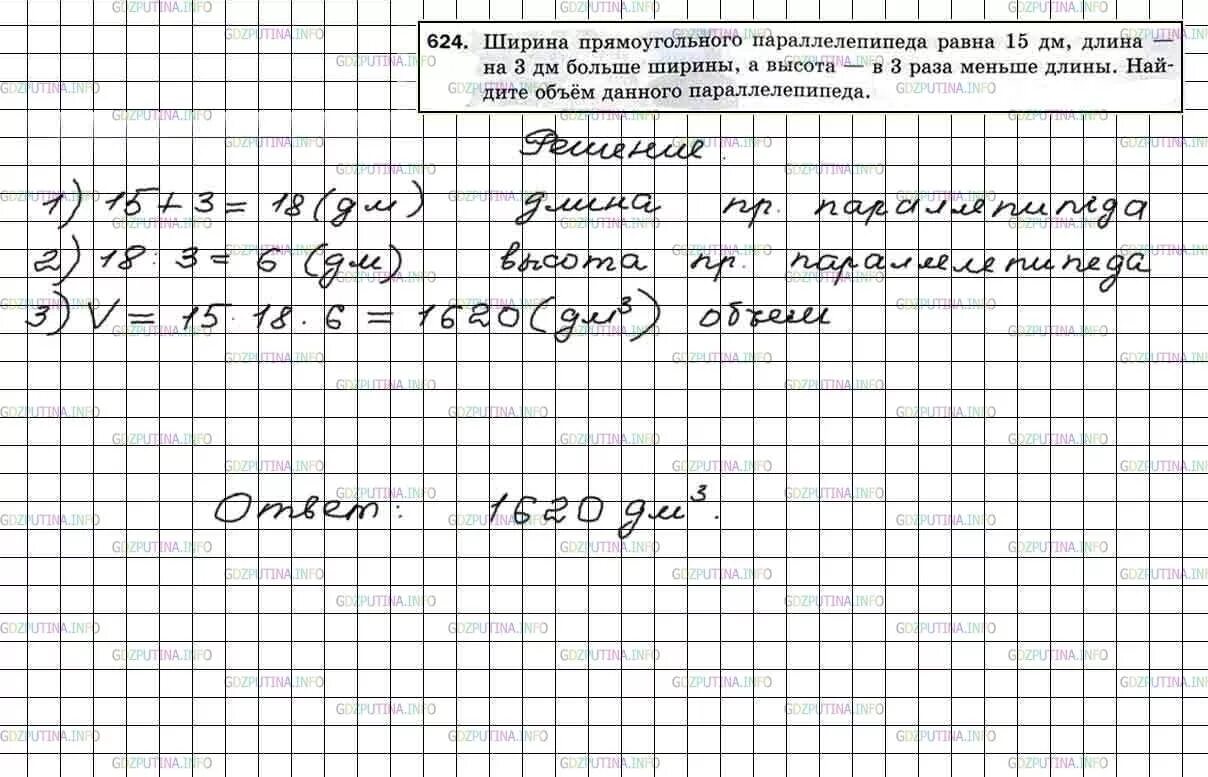 624. Ширина прямоугольного параллелепипеда равна 15 дм, длина —
на 3 дм больше ширины, а высота — в 3 раза меньше длины. Най-
дите объём данного параллелепипеда.
Решение.
1) 15 + 3 = 18 (дм) длина пр. параллепипеда
2) 18 : 3 = 6 (дм) высота пр. параллелепипеда
3) V = 15 · 18 · 6 = 1620 (дм³) объем
Ответ: 1620 дм³.
GDZPUTINA.INFO